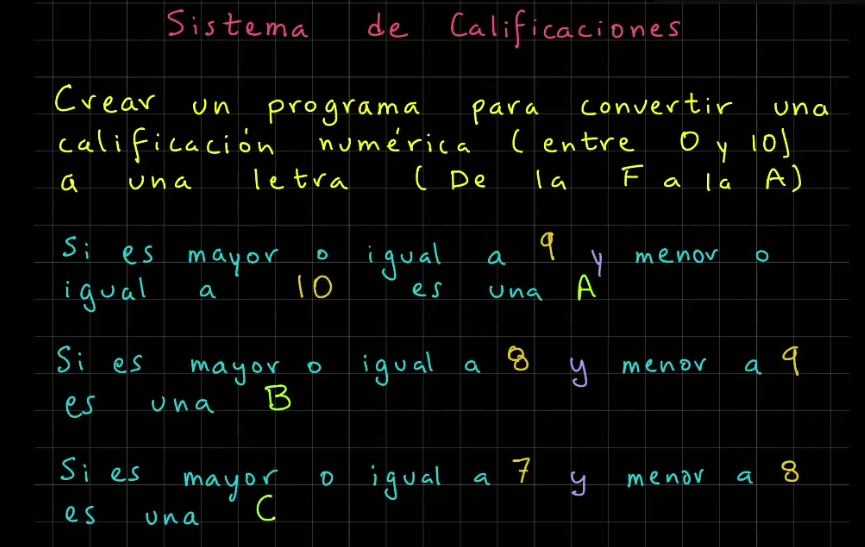 Sistema de Calificaciones
Crear un programa para convertir una
calificación numérica (entre 0 y 10)
a una letra (De la F a la A)
Si es mayor o igual a 9 y menor o
igual a 10 es una A
Si es mayor o igual a 8 y menor a 9
es una B
Si es mayor o igual a 7 y menor a 8
es una C